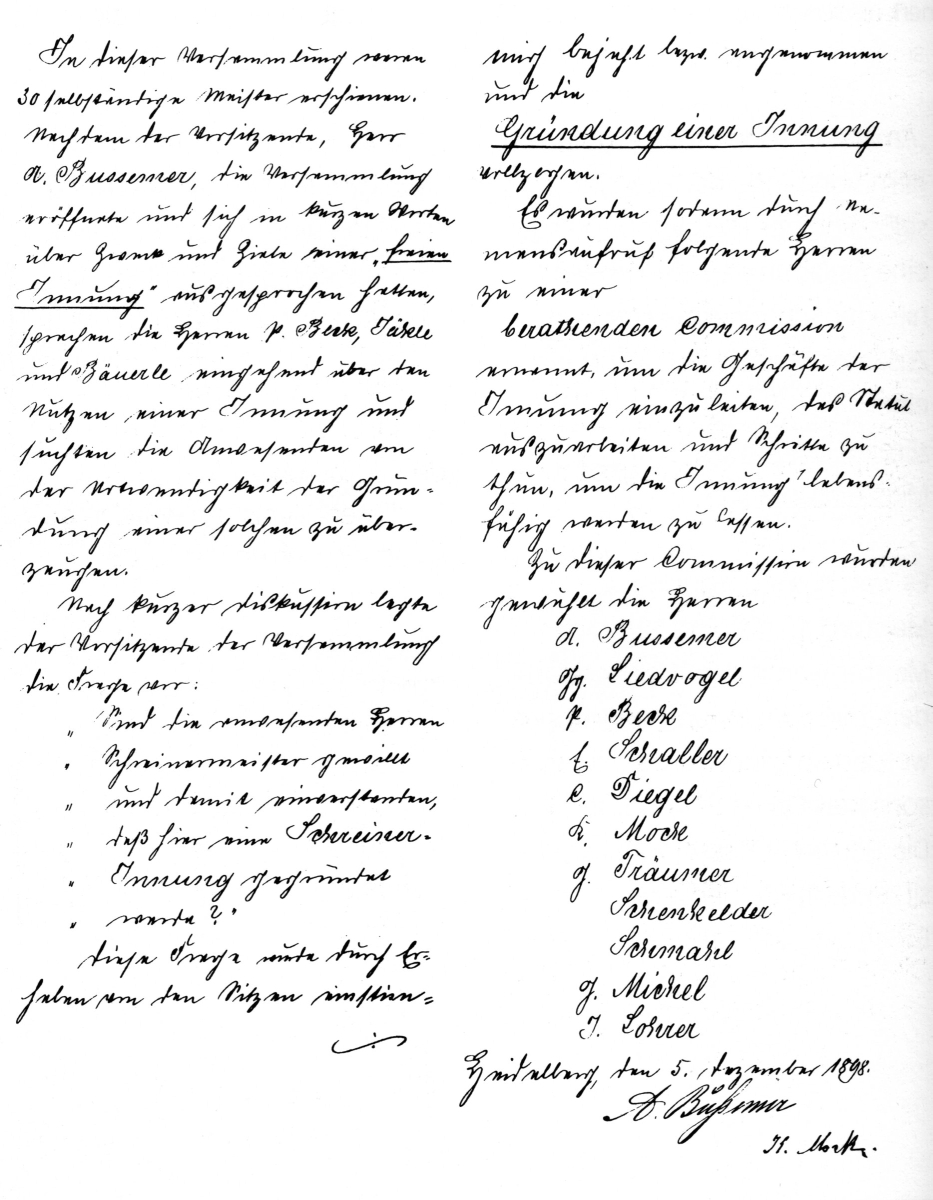 In dieser Versammlung waren
30 selbständige Meister erschienen.
Nachdem der Vorsitzende, Herr
A. Bussemer, die Versammlung
eröffnete und sich in kurzen Worten
über Zweck und Ziele einer „freien
Innung" ausgesprochen hatten,
sprachen die Herren P. Beck, Jäkle
und Bäuerle eingehend über den
Nutzen einer Innung und
suchten die Anwesenden von
der Notwendigkeit der Grün-
dung einer solchen zu über-
zeugen.
Nach kurzer Diskussion legte
der Vorsitzende der Versammlung
die Frage vor:
„ Sind die anwesenden Herren
„ Schreinermeister gewillt
„ und damit einverstanden,
„ daß hier eine Schreiner-
„ Innung gegründet
„ werde?"
Diese Frage wurde durch Er-
heben von den Sitzen einstim-
mig bejaht bezw. angenommen
und die
Gründung einer Innung
vollzogen.
Es wurden sodann durch Na-
mensaufruf folgende Herren
zu einer
berathenden Commission
ernannt, um die Geschäfte der
Innung einzuleiten, das Statut
auszuarbeiten und Schritte zu
thun, um die Innung lebens-
fähig werden zu lassen.
Zu dieser Commission wurden
gewählt die Herren
A. Bussemer
Gg. Liedvogel
P. Beck
F. Schaller
C. Diegel
K. Mock
G. Träumer
Schenkelder
Schmahl
G. Michel
J. Lohrer
Heidelberg, den 5. Dezember 1898.
A. Bußemer
K. Mock.